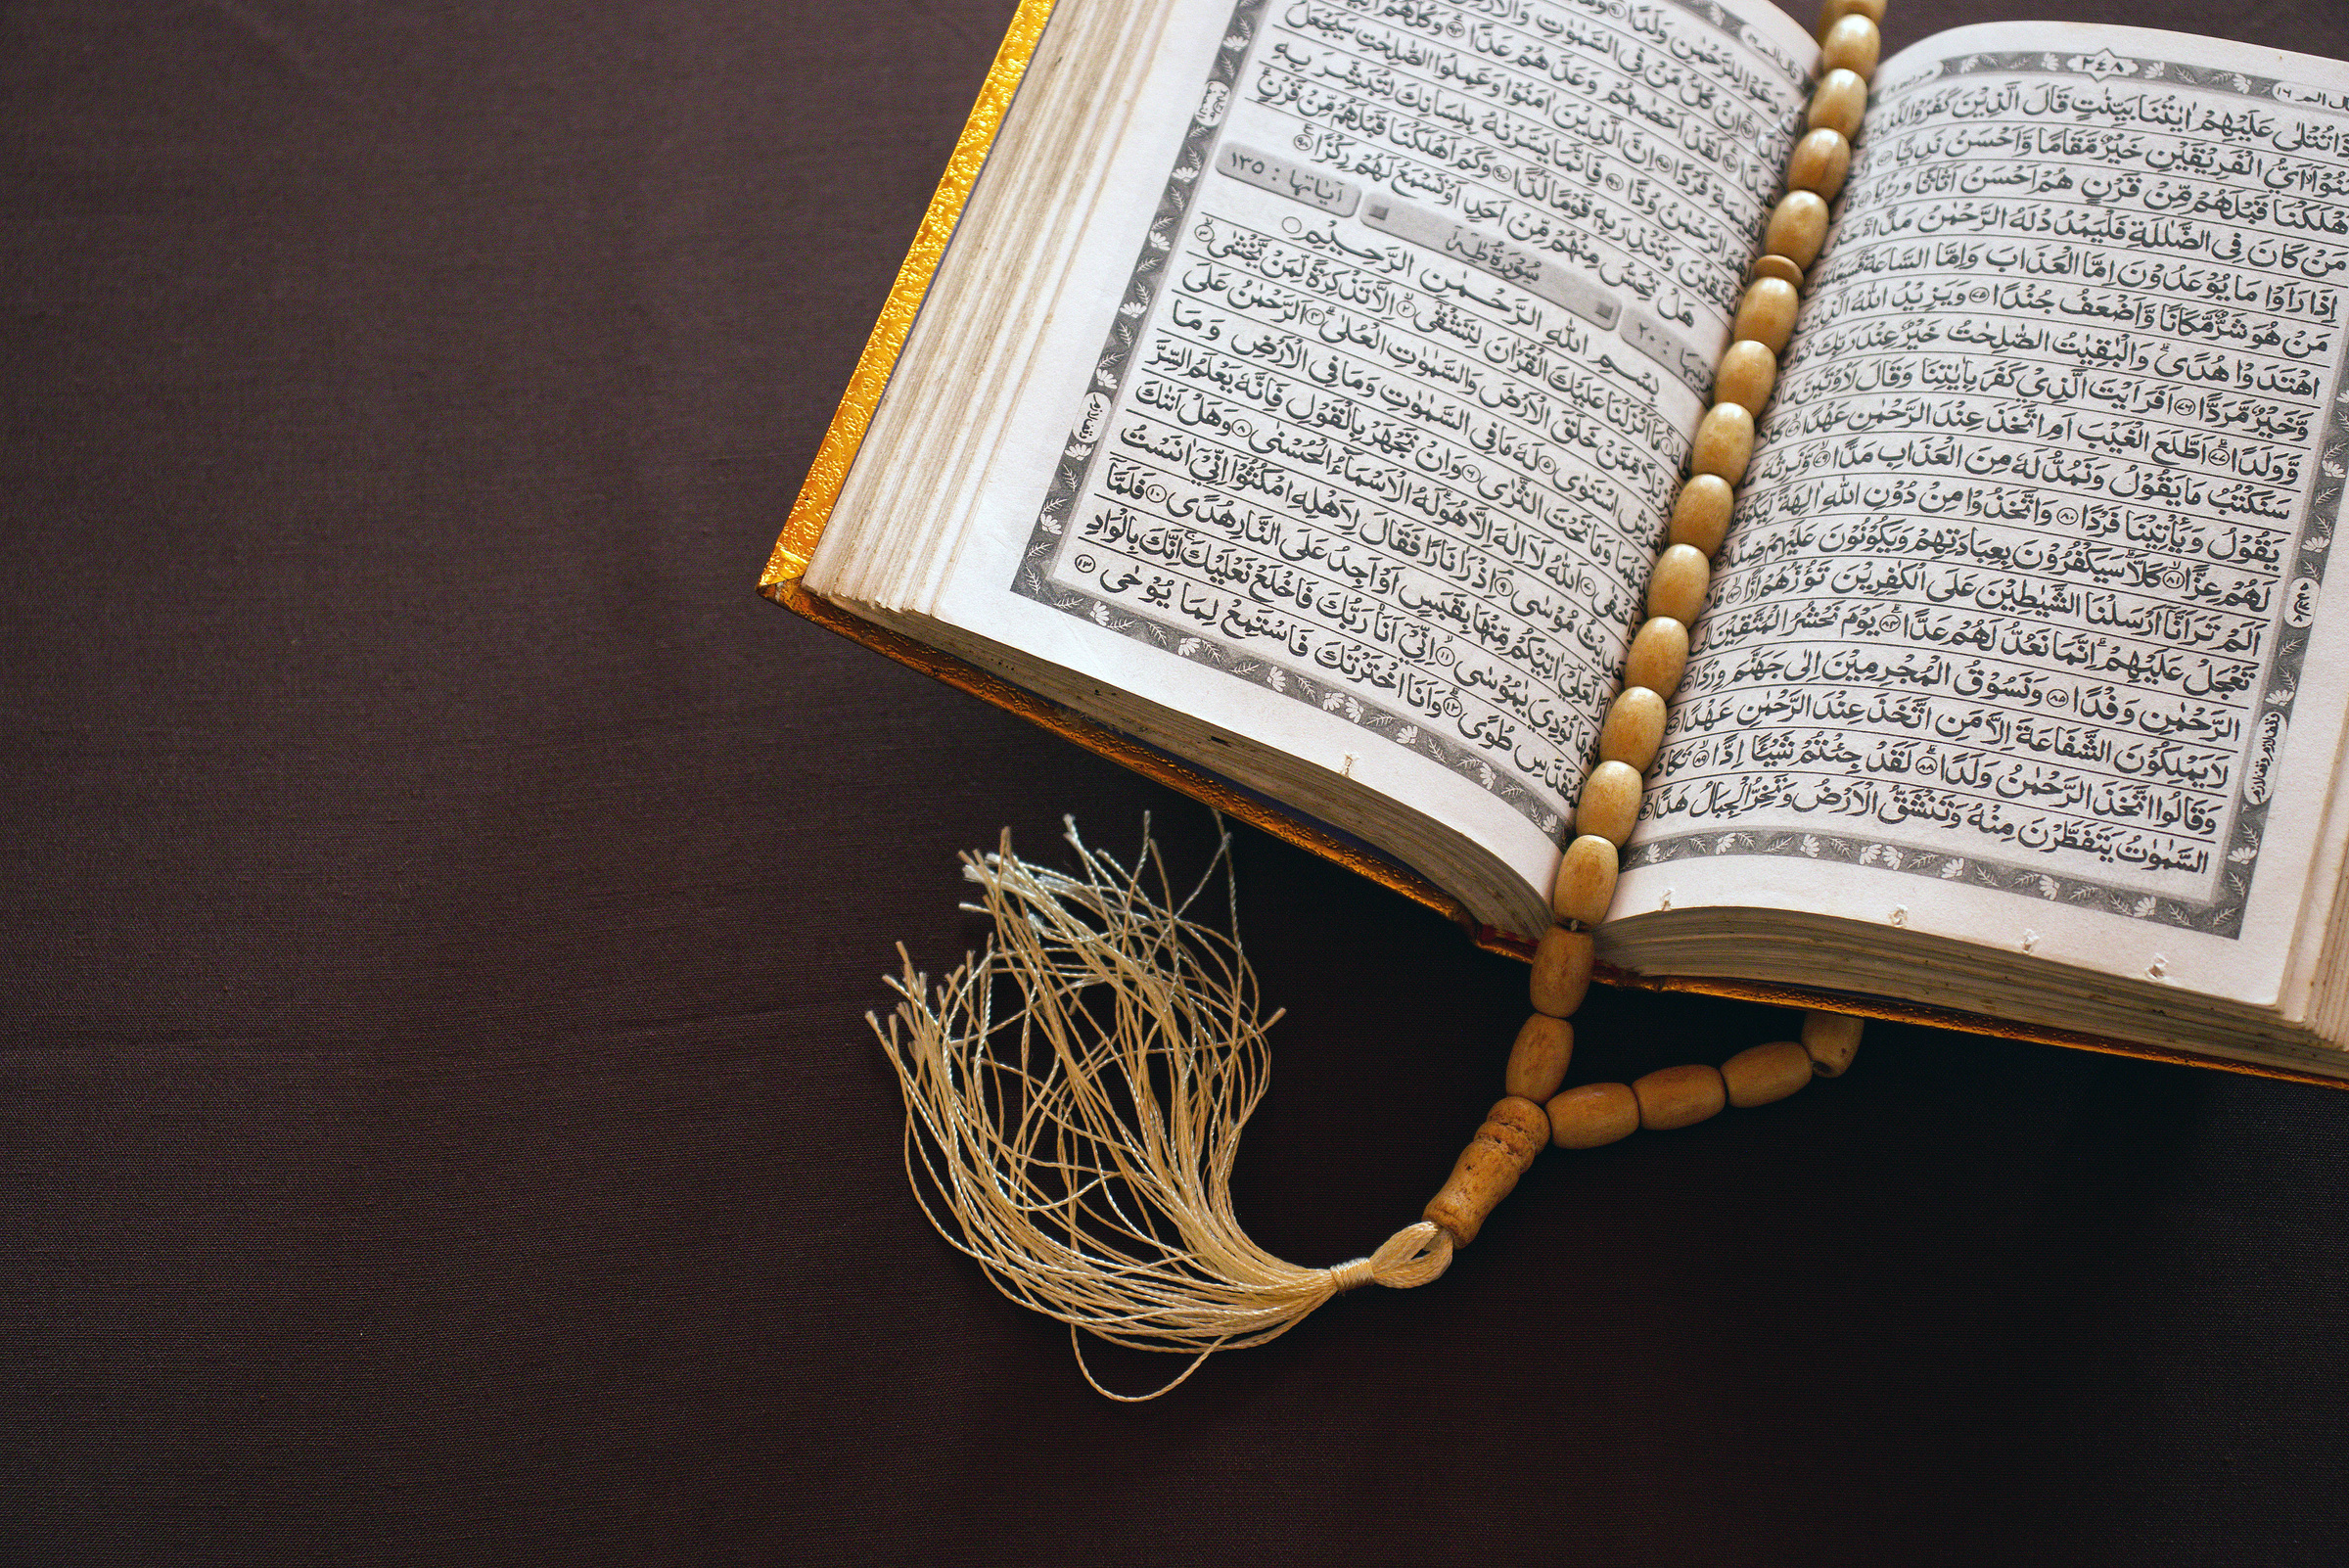 ٢٤٨
تُتْلٰى عَلَيْهِمْ اٰيٰتُنَا بَيِّنٰتٍ قَالَ الَّذِيْنَ كَفَرُوْا لِلَّذِيْنَ
اَيُّ الْفَرِيْقَيْنِ خَيْرٌ مَّقَامًا وَّاَحْسَنُ نَدِيًّا
اَهْلَكْنَا قَبْلَهُمْ مِّنْ قَرْنٍ هُمْ اَحْسَنُ اَثَاثًا وَّرِءْيًا
مَنْ كَانَ فِي الضَّلٰلَةِ فَلْيَمْدُدْ لَهُ الرَّحْمٰنُ مَدًّا
اِذَا رَاَوْا مَا يُوْعَدُوْنَ اِمَّا الْعَذَابَ وَاِمَّا السَّاعَةَ فَسَيَعْلَمُوْنَ
مَنْ هُوَ شَرٌّ مَّكَانًا وَّاَضْعَفُ جُنْدًا ٧٥ وَيَزِيْدُ اللّٰهُ الَّذِيْنَ
اهْتَدَوْا هُدًى وَالْبٰقِيٰتُ الصّٰلِحٰتُ خَيْرٌ عِنْدَ رَبِّكَ ثَوَابًا
وَّخَيْرٌ مَّرَدًّا ٧٦ اَفَرَاَيْتَ الَّذِيْ كَفَرَ بِاٰيٰتِنَا وَقَالَ لَاُوْتَيَنَّ مَالًا
وَّوَلَدًا ٧٧ اَطَّلَعَ الْغَيْبَ اَمِ اتَّخَذَ عِنْدَ الرَّحْمٰنِ عَهْدًا ٧٨ كَلَّا
سَنَكْتُبُ مَا يَقُوْلُ وَنَمُدُّ لَهُ مِنَ الْعَذَابِ مَدًّا ٧٩ وَّنَرِثُهُ مَا
يَقُوْلُ وَيَأْتِيْنَا فَرْدًا ٨٠ وَاتَّخَذُوْا مِنْ دُوْنِ اللّٰهِ اٰلِهَةً لِّيَكُوْنُوْا
لَهُمْ عِزًّا ٨١ كَلَّا سَيَكْفُرُوْنَ بِعِبَادَتِهِمْ وَيَكُوْنُوْنَ عَلَيْهِمْ ضِدًّا
اَلَمْ تَرَ اَنَّا اَرْسَلْنَا الشَّيٰطِيْنَ عَلَى الْكٰفِرِيْنَ تَؤُزُّهُمْ اَزًّا فَلَا
تَعْجَلْ عَلَيْهِمْ اِنَّمَا نَعُدُّ لَهُمْ عَدًّا ٨٤ يَوْمَ نَحْشُرُ الْمُتَّقِيْنَ اِلَى
الرَّحْمٰنِ وَفْدًا ٨٥ وَّنَسُوْقُ الْمُجْرِمِيْنَ اِلٰى جَهَنَّمَ وِرْدًا
لَا يَمْلِكُوْنَ الشَّفَاعَةَ اِلَّا مَنِ اتَّخَذَ عِنْدَ الرَّحْمٰنِ عَهْدًا
وَقَالُوا اتَّخَذَ الرَّحْمٰنُ وَلَدًا ٨٨ لَقَدْ جِئْتُمْ شَيْئًا اِدًّا ٨٩ تَكَادُ
السَّمٰوٰتُ يَتَفَطَّرْنَ مِنْهُ وَتَنْشَقُّ الْاَرْضُ وَتَخِرُّ الْجِبَالُ هَدًّا
دَعَوْا لِلرَّحْمٰنِ وَلَدًا
وَلَدًا اِنْ كُلُّ مَنْ فِي السَّمٰوٰتِ وَالْاَرْضِ
عَبْدًا لَقَدْ اَحْصٰهُمْ وَعَدَّهُمْ عَدًّا وَكُلُّهُمْ اٰتِيْهِ
الْقِيٰمَةِ فَرْدًا اِنَّ الَّذِيْنَ اٰمَنُوْا وَعَمِلُوا الصّٰلِحٰتِ سَيَجْعَلُ
لَهُمُ الرَّحْمٰنُ وُدًّا فَاِنَّمَا يَسَّرْنٰهُ بِلِسَانِكَ لِتُبَشِّرَ بِهِ
الْمُتَّقِيْنَ وَتُنْذِرَ بِهٖ قَوْمًا لُّدًّا وَكَمْ اَهْلَكْنَا قَبْلَهُمْ مِّنْ قَرْنٍ
هَلْ تُحِسُّ مِنْهُمْ مِّنْ اَحَدٍ اَوْ تَسْمَعُ لَهُمْ رِكْزًا
سُوْرَةُ طٰهٰ
اٰيَاتُهَا : ١٣٥
بِسْمِ اللّٰهِ الرَّحْمٰنِ الرَّحِيْمِ
مَا اَنْزَلْنَا عَلَيْكَ الْقُرْاٰنَ لِتَشْقٰى ٢ اِلَّا تَذْكِرَةً لِّمَنْ يَّخْشٰى ٣
مِّمَّنْ خَلَقَ الْاَرْضَ وَالسَّمٰوٰتِ الْعُلٰى ٤ الرَّحْمٰنُ عَلَى
الْعَرْشِ اسْتَوٰى ٥ لَهُ مَا فِي السَّمٰوٰتِ وَمَا فِي الْاَرْضِ وَمَا
بَيْنَهُمَا وَمَا تَحْتَ الثَّرٰى ٦ وَاِنْ تَجْهَرْ بِالْقَوْلِ فَاِنَّهُ يَعْلَمُ السِّرَّ
وَاَخْفٰى ٧ اَللّٰهُ لَا اِلٰهَ اِلَّا هُوَ لَهُ الْاَسْمَاءُ الْحُسْنٰى ٨ وَهَلْ اَتٰىكَ
حَدِيْثُ مُوْسٰى ٩ اِذْ رَاٰ نَارًا فَقَالَ لِاَهْلِهِ امْكُثُوْا اِنِّيْ اٰنَسْتُ
لَّعَلِّيْ اٰتِيْكُمْ مِّنْهَا بِقَبَسٍ اَوْ اَجِدُ عَلَى النَّارِ هُدًى ١٠ فَلَمَّا
اَتٰىهَا نُوْدِيَ يٰمُوْسٰى ١١ اِنِّيْ اَنَا رَبُّكَ فَاخْلَعْ نَعْلَيْكَ اِنَّكَ بِالْوَادِ
الْمُقَدَّسِ طُوًى ١٢ وَاَنَا اخْتَرْتُكَ فَاسْتَمِعْ لِمَا يُوْحٰى ١٣